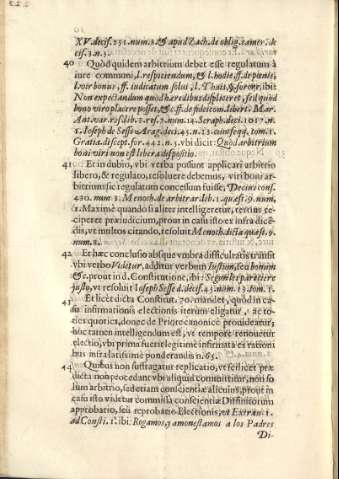 XV. decis. 251. num. 2. & apud Zach. de oblig. camer. de
cis. 3. n. 3.
40 Quod quidem arbitrium debet esse regulatum à
iure communi, l. respiciendum, & l. hodie, ff. de pœnis,
l. vir bonus, ff. iudicatum solui, l. Thais, §. soror, ibi:
Non expectandum quod hæredibus displiceret, sed quid
bono viro placere posset, & ff. de fideicom. libert. Mar.
Ant. var. resol. lib. 2. res. 7. num. 14. Seraph. deci. 1017. n.
5. Ioseph de Sesse Arag. deci. 45. n. 23. cum seqq. tom. 1.
Gratia. discept. for. 442. n. 5. vbi dicit: Quòd arbitrium
boni viri non est libera dispositio.
41 Et in dubio, vbi verba possunt applicari arbitrio
libero, & regulato, resoluere debemus, viri boni ar-
bitrium sic regulatum concessum fuisse, Decius cons.
420. num. 3. Menoch. de arbitrar. lib. 1. quæst. 9. num.
1. Maximè quando si aliter intelligeretur, tertius re-
ciperet præiudicium, prout in casu isto ex infra dicē-
dis, vt multos citando, resoluit Menoch. dicta quæst. 9.
num. 2.
42 Et hæc conclusio absque vmbra difficultatis transit
vbi verbo Videtur, additur verbum Iustum, seu bonum
& c. prout in d. Constitutione, ibi: Segun les pareciere
justo, vt resoluit Ioseph Sesse d. decis. 45. num. 13. tom. 1.
43 Et licèt dicta Constitut. 70. mandet, quòd in ca-
su infirmationis electionis iterum eligatur, ac to-
ties quoties, donec de Priore canonicè prouideatur;
hoc tamen intelligendum est, vt tempore renouetur
electio, vbi prima fuerit legitimè infirmata ex rationi
bus infra latissimè ponderandis n. 65.
44 Quibus non suffragatur replicatio, vt scilicet præ
dicta non procedant vbi aliquid committitur, non so
lùm arbitrio, sed etiam conscientiæ alicuius, prout in
casu isto videtur commissa conscientiæ Diffinitorum
approbatio, seù reprobatio Electionis, vt Extrau. 1.
ad Consti. 1. ibi: Rogamos, y amonestamos a los Padres
Di-